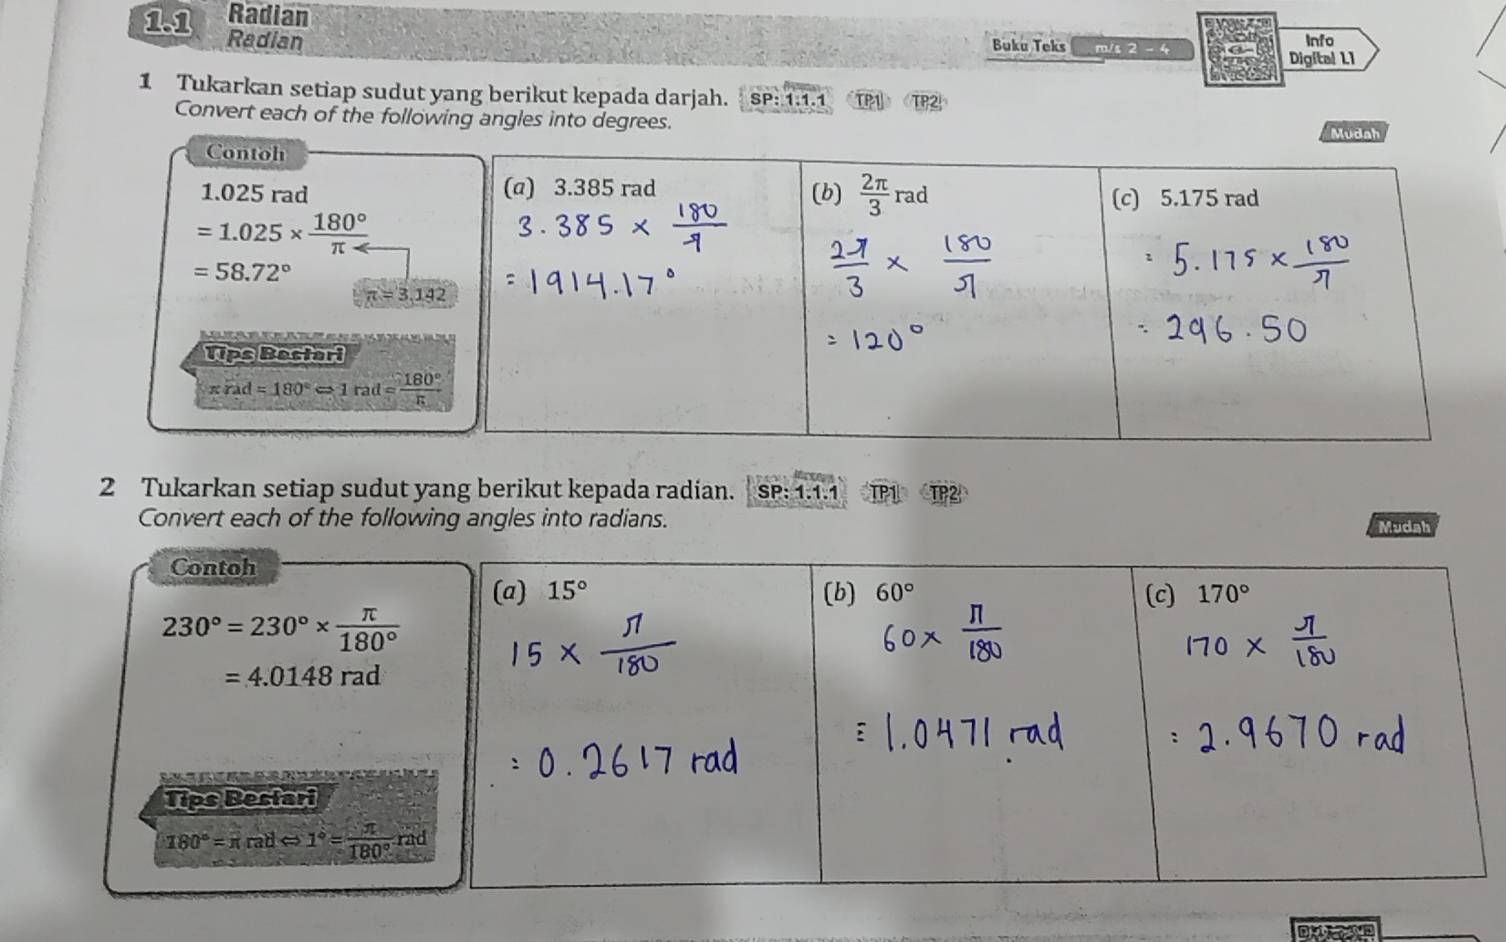 1.1 Radian
Radian
Buku Teks m/s 2 – 4
Info
Digital 1.1
1 Tukarkan setiap sudut yang berikut kepada darjah. SP: 1.1.1 TP1 TP2
Convert each of the following angles into degrees.
Mudah
Contoh
1.025 rad
= 1.025 × 180°/π
= 58.72°
π = 3.142
Tips Bestari
π rad = 180° ⇔ 1 rad = 180°/π
(a) 3.385 rad
3.385 × 180/π
= 1914.17°
(b) 2π/3 rad
2π/3 × 180/π
= 120°
(c) 5.175 rad
= 5.175 × 180/π
= 296.50
2 Tukarkan setiap sudut yang berikut kepada radian. SP: 1.1.1 TP1 TP2
Convert each of the following angles into radians.
Mudah
Contoh
230° = 230° × π/180°
= 4.0148 rad
Tips Bestari
180° = π rad ⇔ 1° = π/180° rad
(a) 15°
15 × π/180
= 0.2617 rad
(b) 60°
60 × π/180
= 1.0471 rad
(c) 170°
170 × π/180
= 2.9670 rad